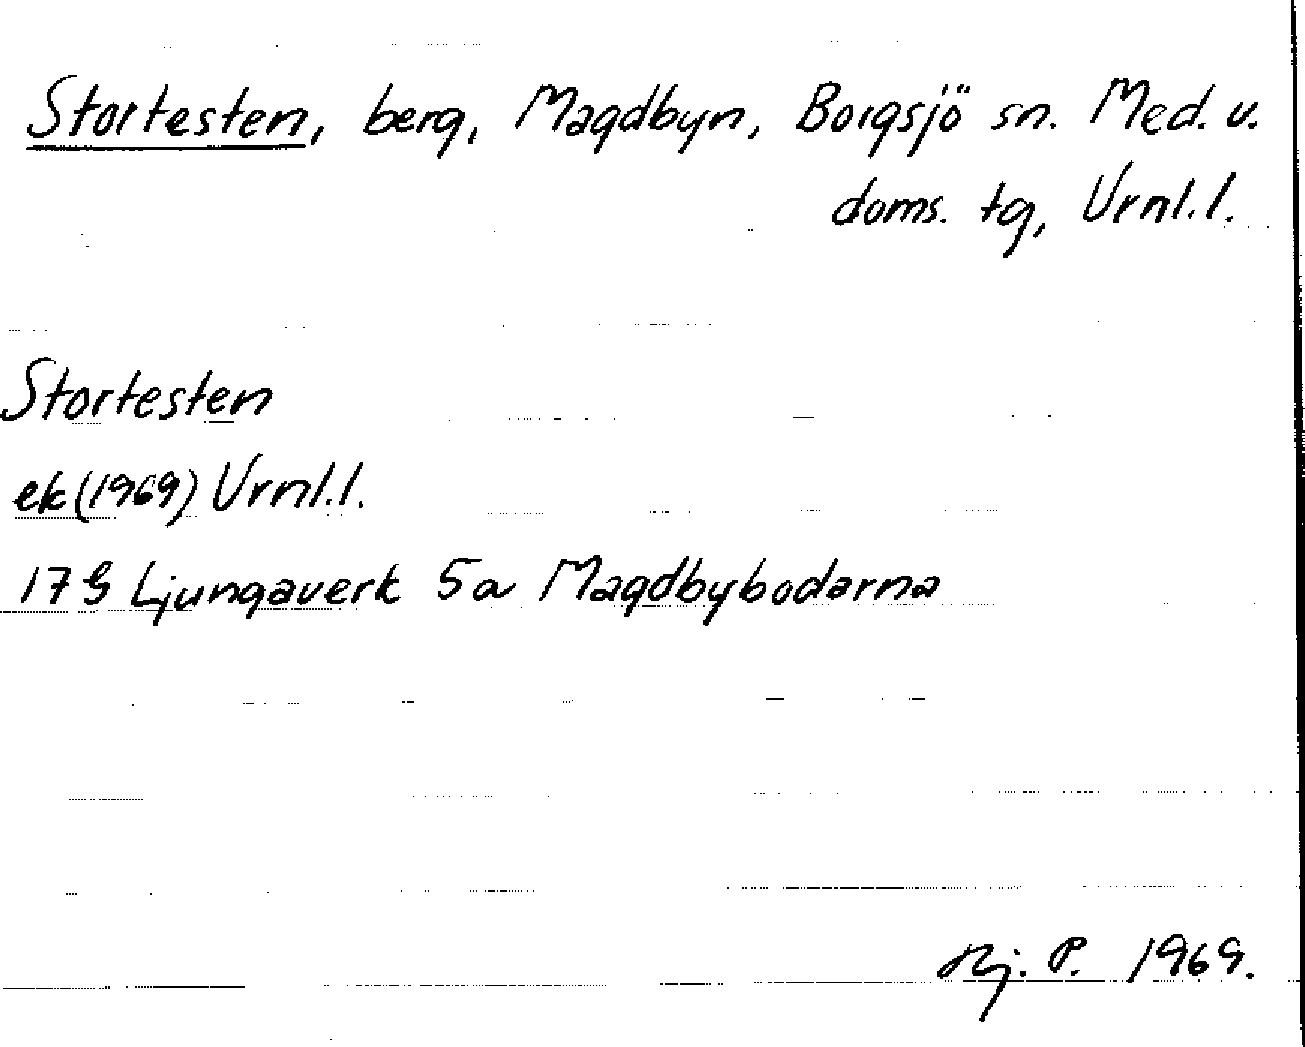 Stortesten, berg, Magdbyn, Borgsjö sn. Med. v.
doms. tg, Vrnl.l.
Stortesten
ek (1969) Vrnl.l.
17 G Ljungaverk 5a Magdbybodarna
Hj. P. 1969.